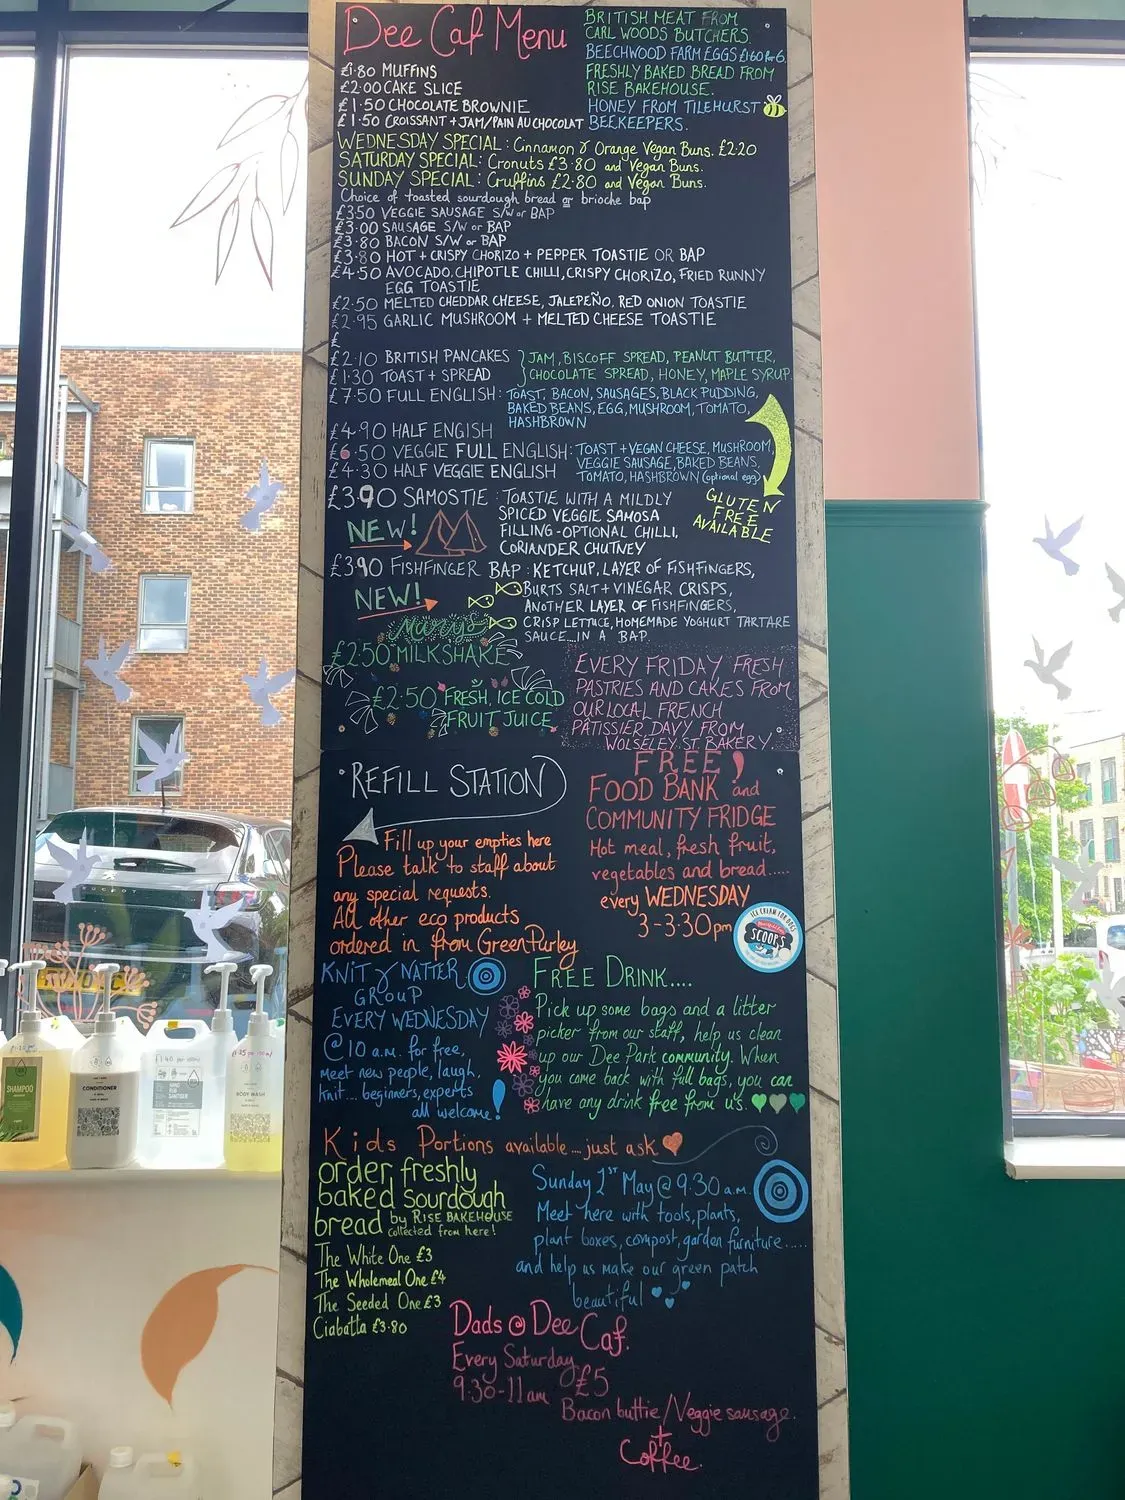 Dee Caf Menu
BRITISH MEAT FROM
CARL WOODS BUTCHERS.
BEECHWOOD FARM EGGS £1.60 for 6.
FRESHLY BAKED BREAD FROM
RISE BAKEHOUSE.
HONEY FROM TILEHURST
BEEKEEPERS.
£1.80 MUFFINS
£2.00 CAKE SLICE
£1.50 CHOCOLATE BROWNIE
£1.50 CROISSANT + JAM/PAIN AU CHOCOLAT
WEDNESDAY SPECIAL: Cinnamon & Orange Vegan Buns. £2.20
SATURDAY SPECIAL: Cronuts £3.80 and Vegan Buns.
SUNDAY SPECIAL: Cruffins £2.80 and Vegan Buns.
Choice of toasted sourdough bread or brioche bap
£3.50 VEGGIE SAUSAGE S/W or BAP
£3.00 SAUSAGE S/W or BAP
£3.80 BACON S/W or BAP
£3.80 HOT + CRISPY CHORIZO + PEPPER TOASTIE OR BAP
£4.50 AVOCADO, CHIPOTLE CHILLI, CRISPY CHORIZO, FRIED RUNNY
EGG TOASTIE
£2.50 MELTED CHEDDAR CHEESE, JALEPEÑO, RED ONION TOASTIE
£2.95 GARLIC MUSHROOM + MELTED CHEESE TOASTIE
£
£2.10 BRITISH PANCAKES
£1.30 TOAST + SPREAD
JAM, BISCOFF SPREAD, PEANUT BUTTER,
CHOCOLATE SPREAD, HONEY, MAPLE SYRUP.
£7.50 FULL ENGLISH: TOAST, BACON, SAUSAGES, BLACK PUDDING,
BAKED BEANS, EGG, MUSHROOM, TOMATO,
HASHBROWN
£4.90 HALF ENGISH
£6.50 VEGGIE FULL ENGLISH: TOAST + VEGAN CHEESE, MUSHROOM,
VEGGIE SAUSAGE, BAKED BEANS,
£4.30 HALF VEGGIE ENGLISH
TOMATO, HASHBROWN (optional egg)
GLUTEN
FREE
AVAILABLE
£3.90 SAMOSTIE: TOASTIE WITH A MILDLY
SPICED VEGGIE SAMOSA
FILLING - OPTIONAL CHILLI,
CORIANDER CHUTNEY
NEW!
£3.90 FISHFINGER BAP: KETCHUP, LAYER OF FISHFINGERS,
BURTS SALT + VINEGAR CRISPS,
ANOTHER LAYER OF FISHFINGERS,
CRISP LETTUCE, HOMEMADE YOGHURT TARTARE
SAUCE...IN A BAP.
NEW!
Mary's
£2.50 MILKSHAKE
£2.50 FRESH, ICE COLD
FRUIT JUICE
EVERY FRIDAY FRESH
PASTRIES AND CAKES FROM
OUR LOCAL FRENCH
PÂTISSIER, DAVY FROM
WOLSELEY ST. BAKERY.
REFILL STATION
Fill up your empties here
Please talk to staff about
any special requests.
All other eco products
ordered in from GreenPurley
FREE!
FOOD BANK and
COMMUNITY FRIDGE
Hot meal, fresh fruit,
vegetables and bread.....
every WEDNESDAY
3-3:30pm
ICE CREAM FOR DOGS
SCOOP'S
KNIT & NATTER
GROUP
EVERY WEDNESDAY
@ 10 a.m. for free,
meet new people, laugh,
knit... beginners, experts
all welcome!
FREE DRINK....
Pick up some bags and a litter
picker from our staff, help us clean
up our Dee Park community. When
you come back with full bags, you can
have any drink free from us.
Kids Portions available....just ask
order freshly
baked sourdough
bread by RISE BAKEHOUSE
collected from here!
The White One £3
The Wholemeal One £4
The Seeded One £3
Ciabatta £3.80
Sunday 1ST May @ 9:30 a.m.
Meet here with tools, plants,
plant boxes, compost, garden furniture.....
and help us make our green patch
beautiful
Dads @ Dee Caf.
Every Saturday
9:30-11am £5
Bacon buttie/Veggie sausage.
+
Coffee.
PEUGEOT
SHAMPOO
CONDITIONER
HAND
SANITISER
BODY WASH